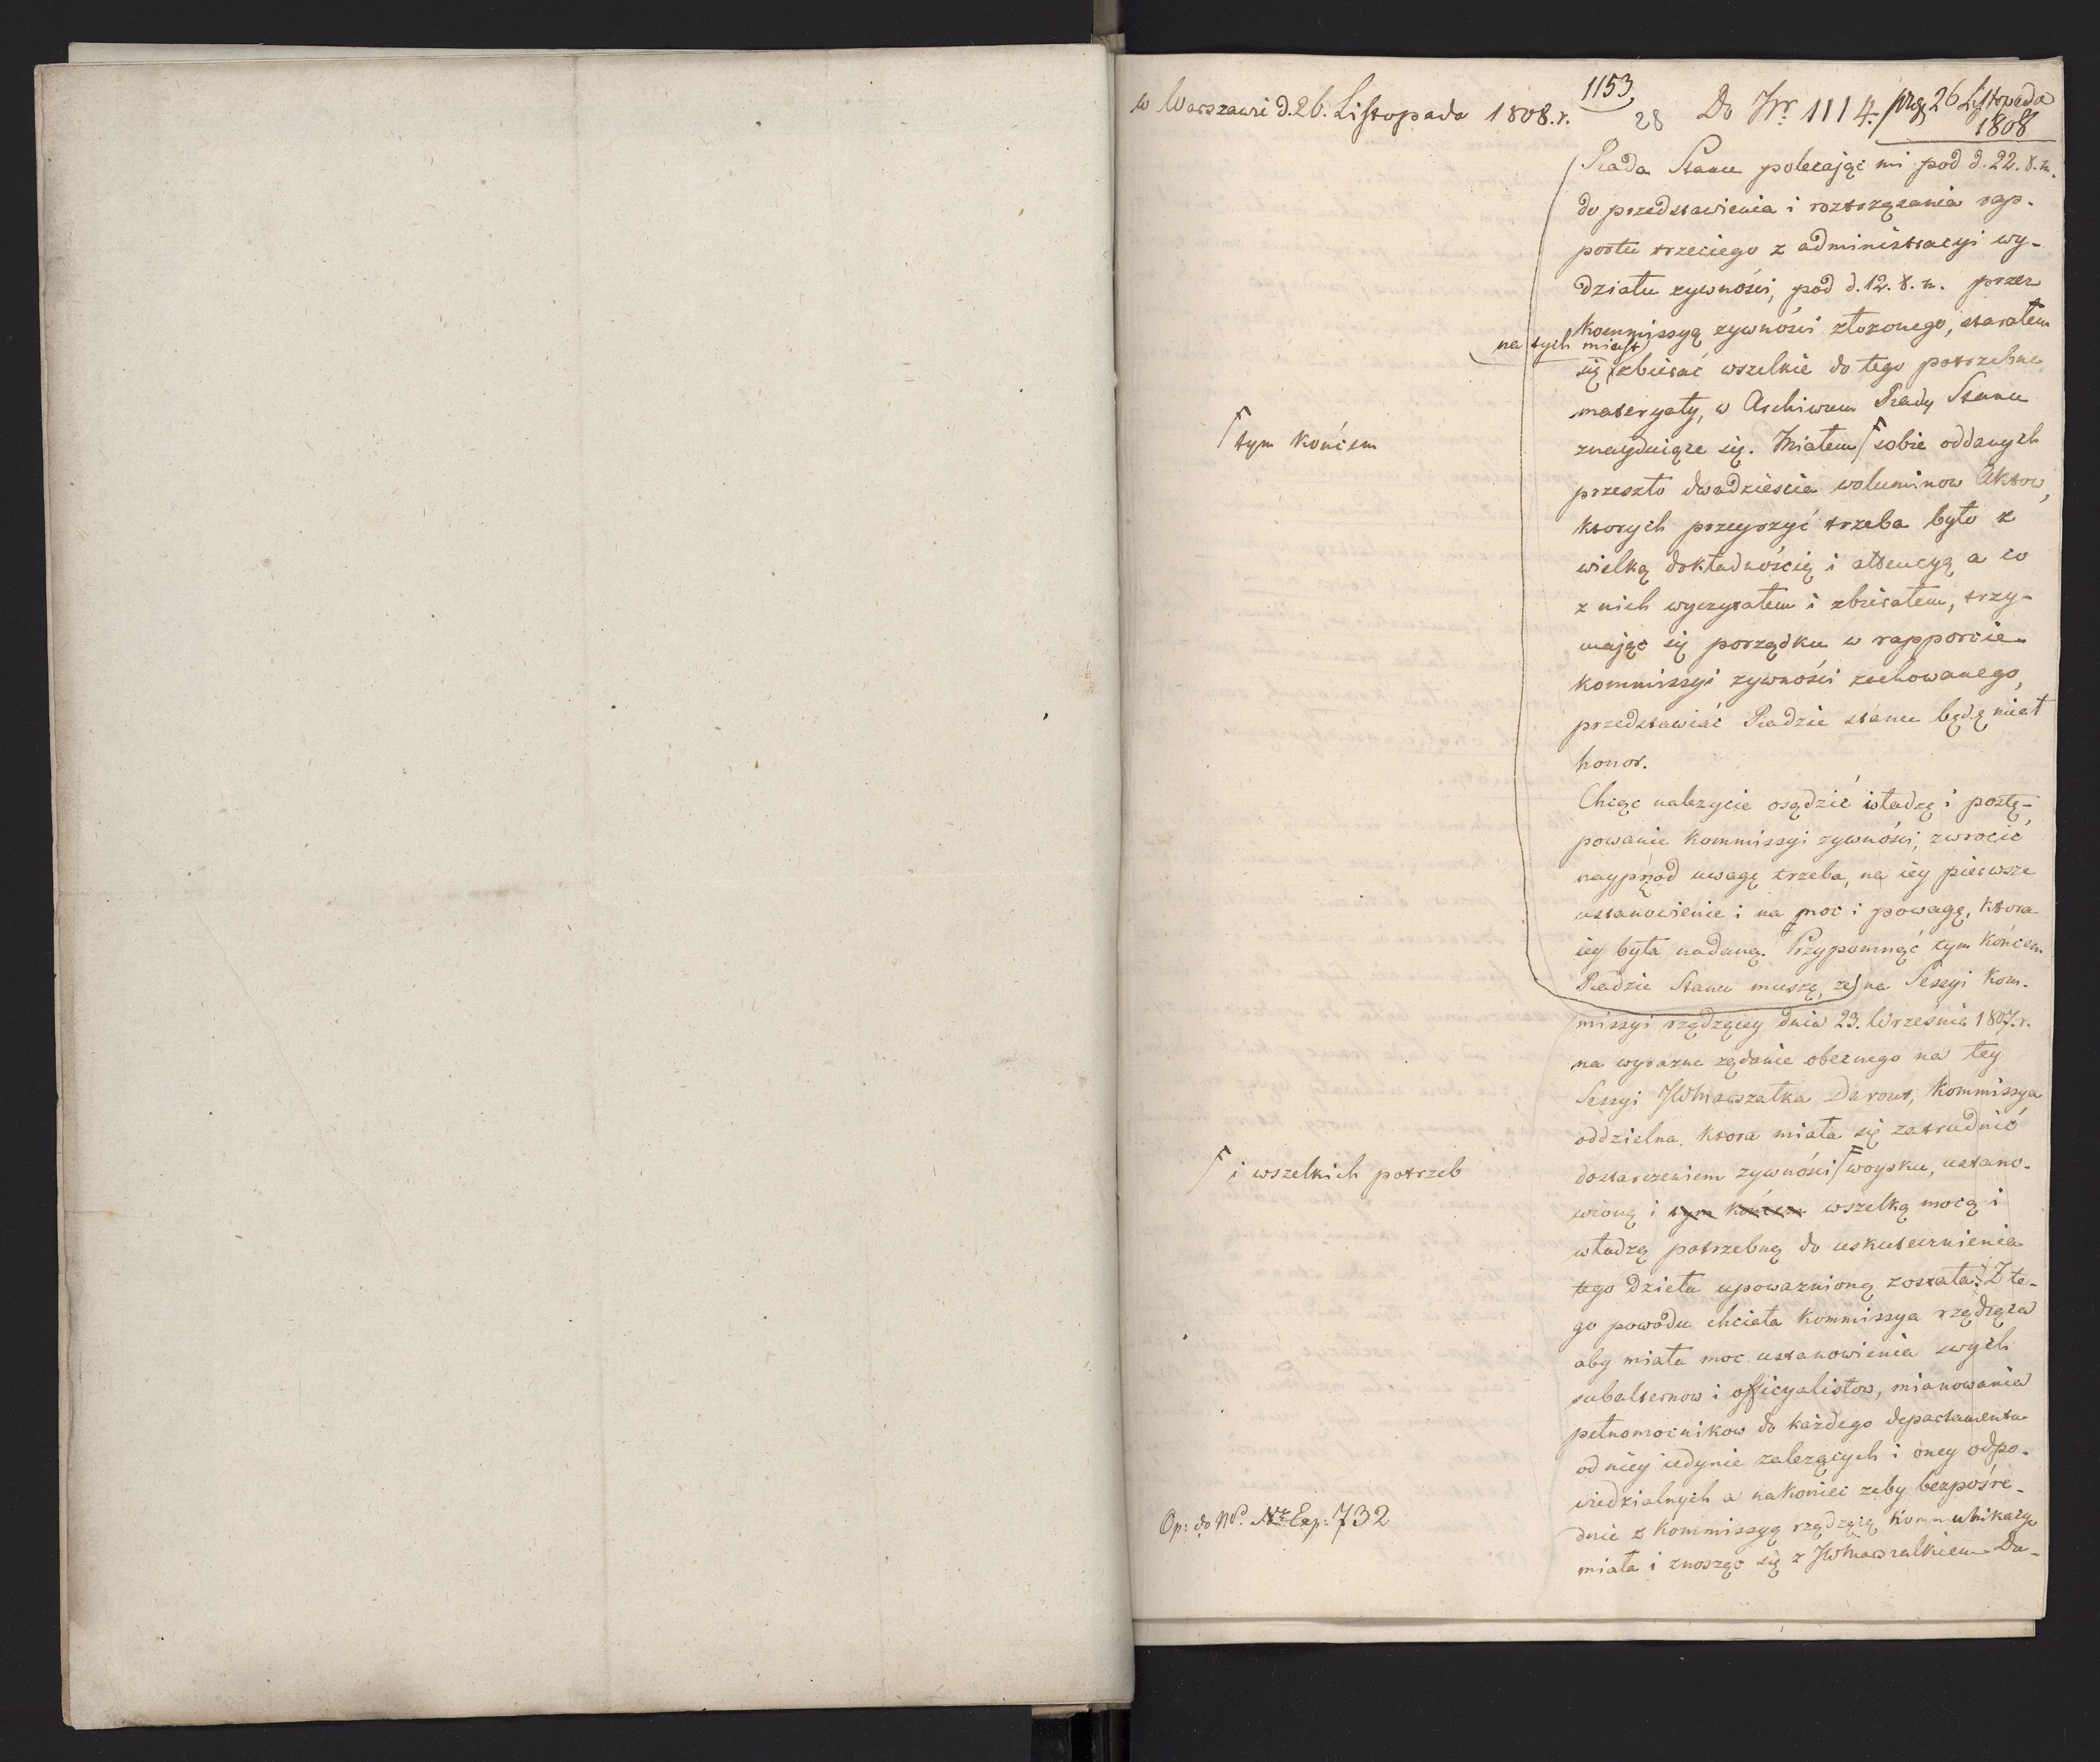 w Warszawie d. 26. Listopada 1808. r.
1153
28
Do Nr. 1114. prz. 26 Listopada
1808
Rada Stanu polecając mi pod d. 22. b. m.
do przedstawienia i roztrząsania rap-
portu trzeciego z administracyi wy-
działu zywności, pod d. 12. b. m. przez
Kommissyą zywności złozonego, starałem
na tych miast
się zbierać wszelkie do tego potrzebne
materyały, w Archiwum Rady Stanu
znayduiące się. Miałem sobie oddanych
tym Końcem
przeszło dwadzieścia woluminow Aktow,
ktorych przeyrzyć trzeba było z
wielką dokładnością i attencyą a co
z nich wyczytałem i zbierałem, trzy-
mając się porządku w rapporcie
kommissyi zywności zachowanego,
przedstawiać Radzie stanu będę miał
honor.
Chcąc nalezycie osądzić władzę i postę-
powanie Kommissyi zywności, zwrocić
nayprzod uwagę trzeba, na iey pierwsze
ustanowienie i na moc i powagę, ktora
iey była nadaną. Przypomnąć tym Końcem
Radzie Stanu muszę, ze na Sessyi Kom-
missyi rządzącey dnia 23. Września 1807. r.
na wyrazne ządanie obecnego na tey
Sessyi JW Marszałka Davout, Kommissya
oddzielna, ktora miała się zatrudnić
dostarczeniem zywności woysku, ustano-
i wszelkich potrzeb
wioną i tym Końcem wszelką mocą i
władzą potrzebną do uskutecznienia
tego dzieła upowaznioną została. Z te-
go powodu chciała Kommissya rządząca
aby miała moc ustanowienia swych
subalternow i officyalistow, mianowania
pełnomocnikow do każdego departamentu
od niey iedynie zalezących i oney odpo-
wiedzialnych a nakoniec zeby bezpośre-
dnie z Kommissyą rządzącą kommunikacyą
miała i znosząc się z JW Marszałkiem Da-
Op: do Nr. Exp: 732